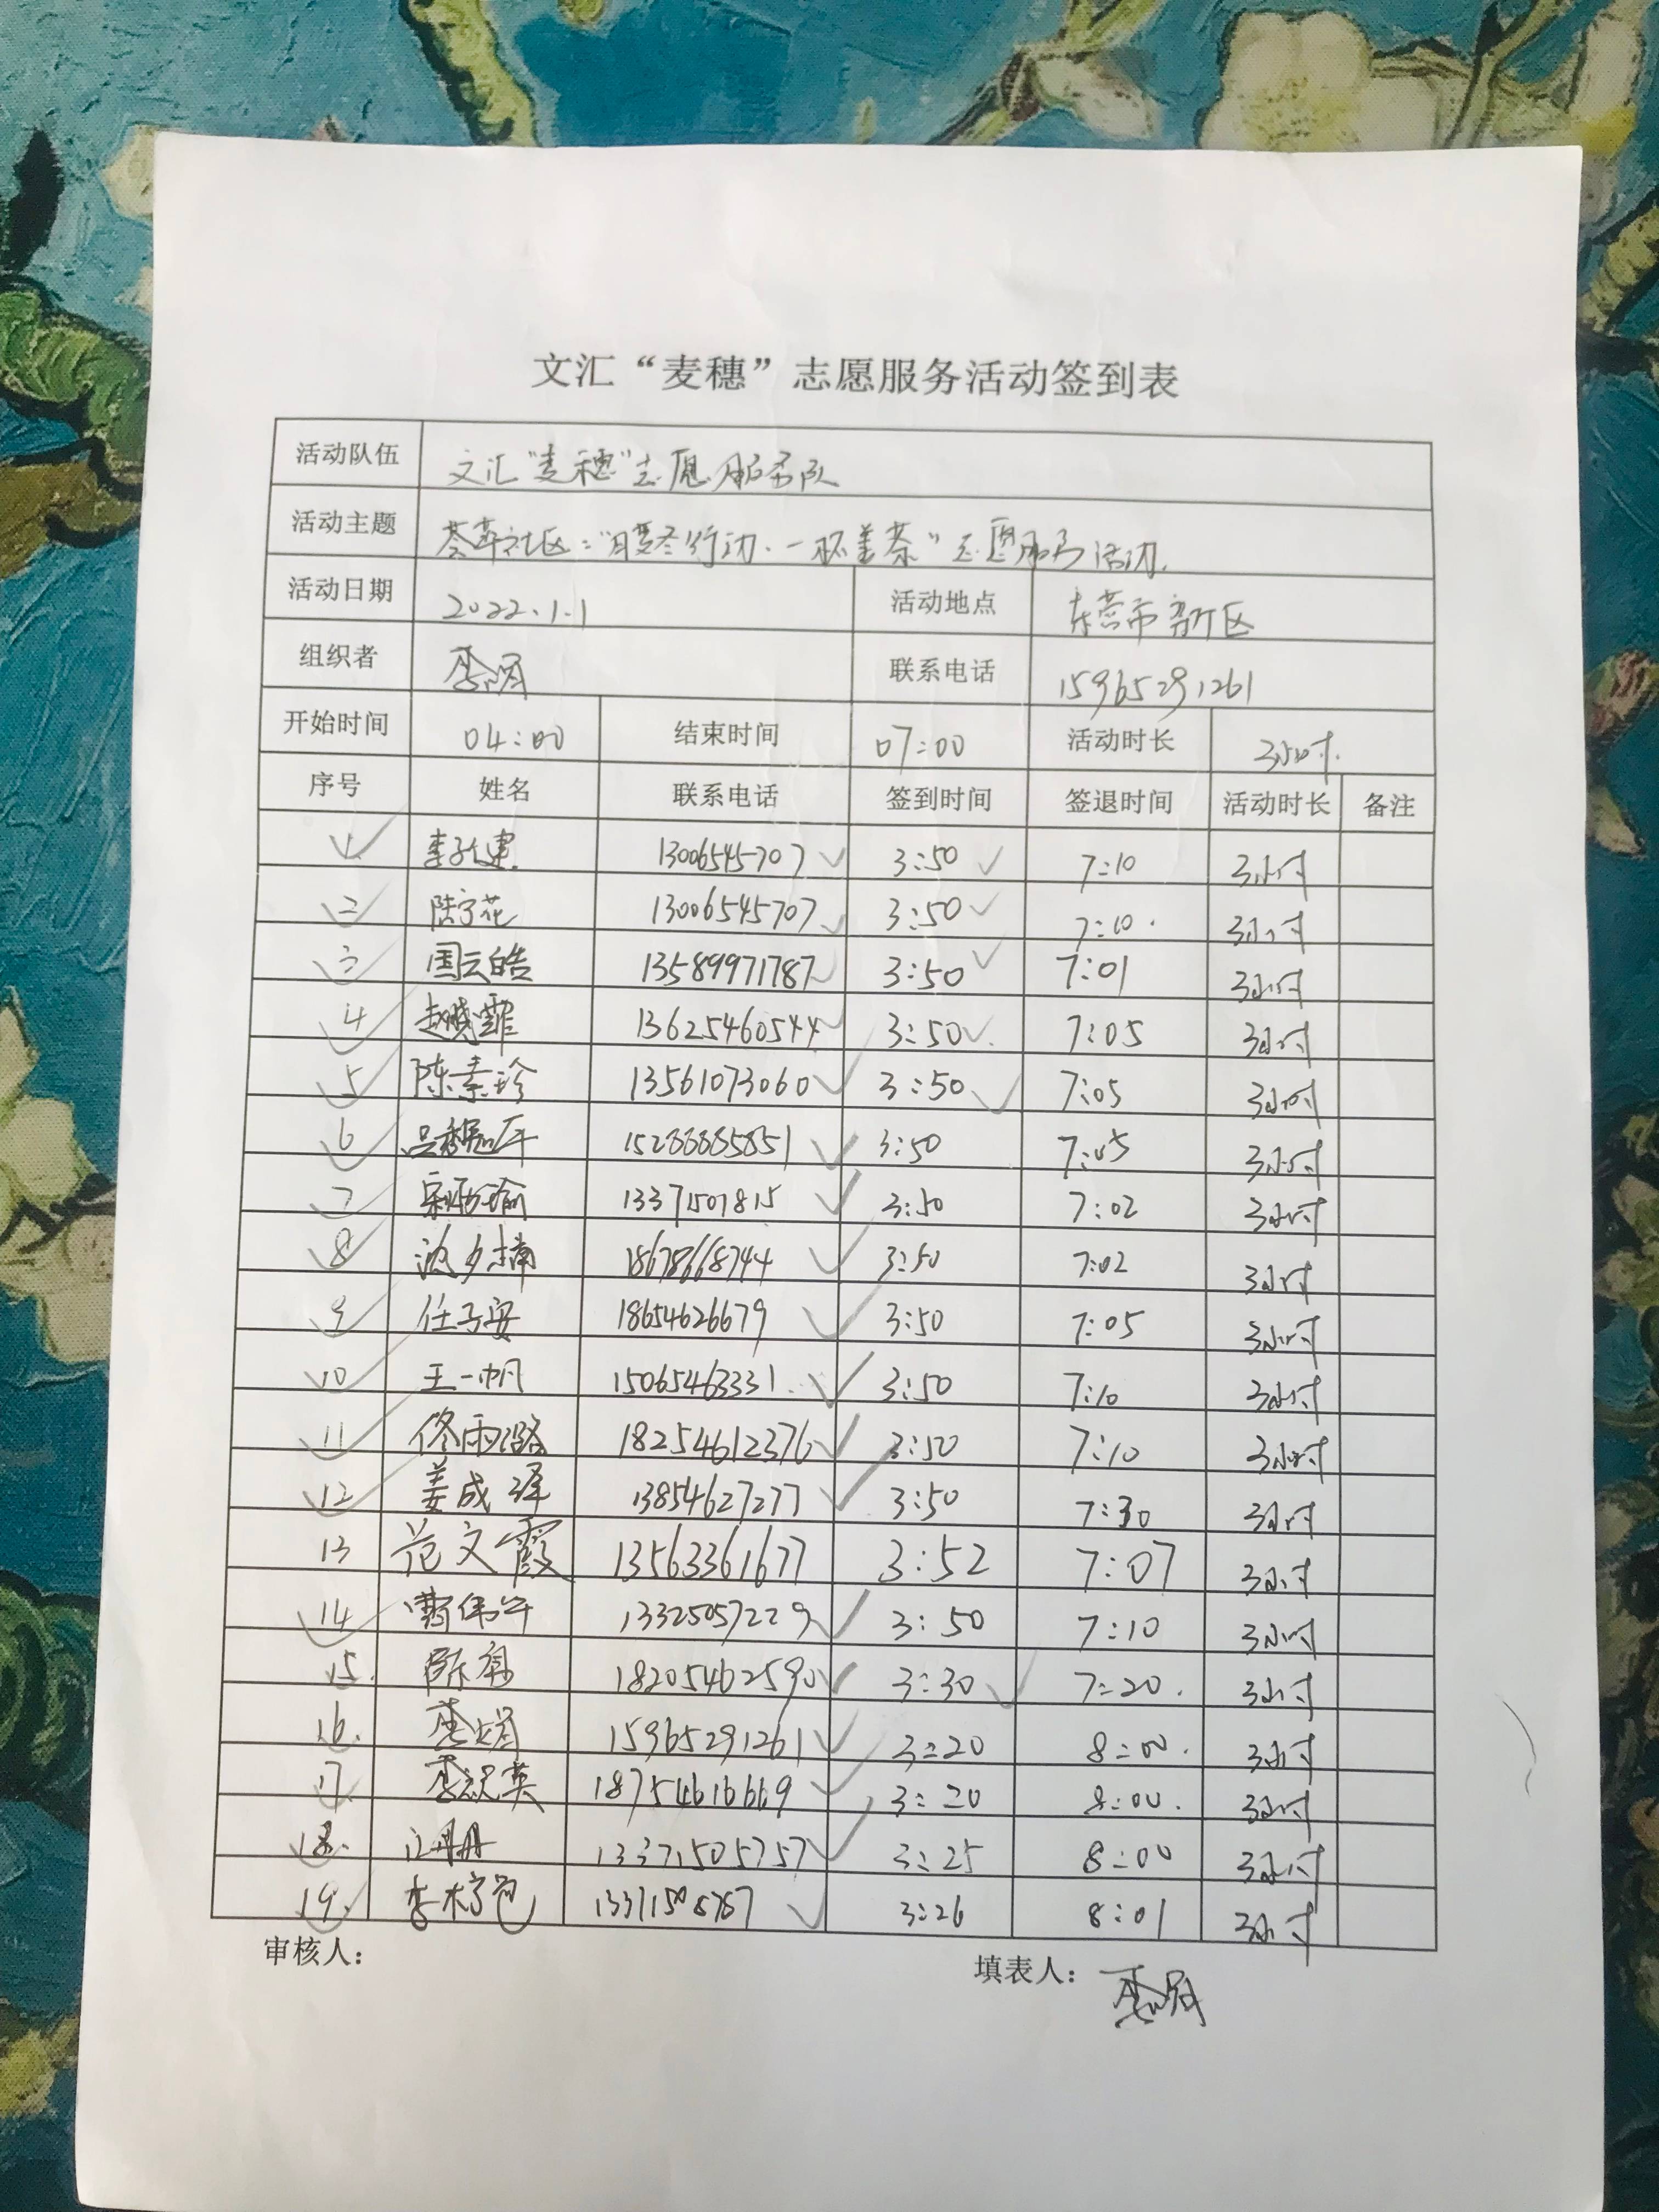 文汇“麦穗”志愿服务活动签到表
活动队伍 文汇“麦穗”志愿服务队
活动主题 荟萃社区:“暖冬行动·一杯姜茶”志愿服务活动.
活动日期 2022.1.1 活动地点 东营市新区
组织者 李娟 联系电话 15965291261
开始时间 04:00 结束时间 07:00 活动时长 3小时.
序号 姓名 联系电话 签到时间 签退时间 活动时长 备注
1 13006545707 3:50 7:10 3小时
2 13006545707 3:50 7:10. 3小时
3 国云皓 13589971787 3:50 7:01 3小时
4 赵晓霏 13625460544 3:50 7:05 3小时
5 陈素珍 13561073060 3:50 7:05 3小时
6 3:50 7:05 3小时
7 13371501815 3:50 7:02 3小时
8 18678668744 3:50 7:02 3小时
9 任子安 18654626679 3:50 7:05 3小时
10 王一帆 15065463331 3:50 7:10 3小时
11 佟雨潞 18254612376 3:50 7:10 3小时
12 姜成泽 13854627277 3:50 7:30 3小时
13 范文霞 13563361677 3:52 7:07 3小时
14 13325057229 3:50 7:10 3小时
15. 18205462590 3:30 7:20. 3小时
16. 李娟 15965291261 3:20 8:00. 3小时
17. 18754616669 3:20 8:00. 3小时
18. 13371505757 3:25 8:00 3小时
19. 3:26 8:01 3小时
审核人: 填表人: 李娟